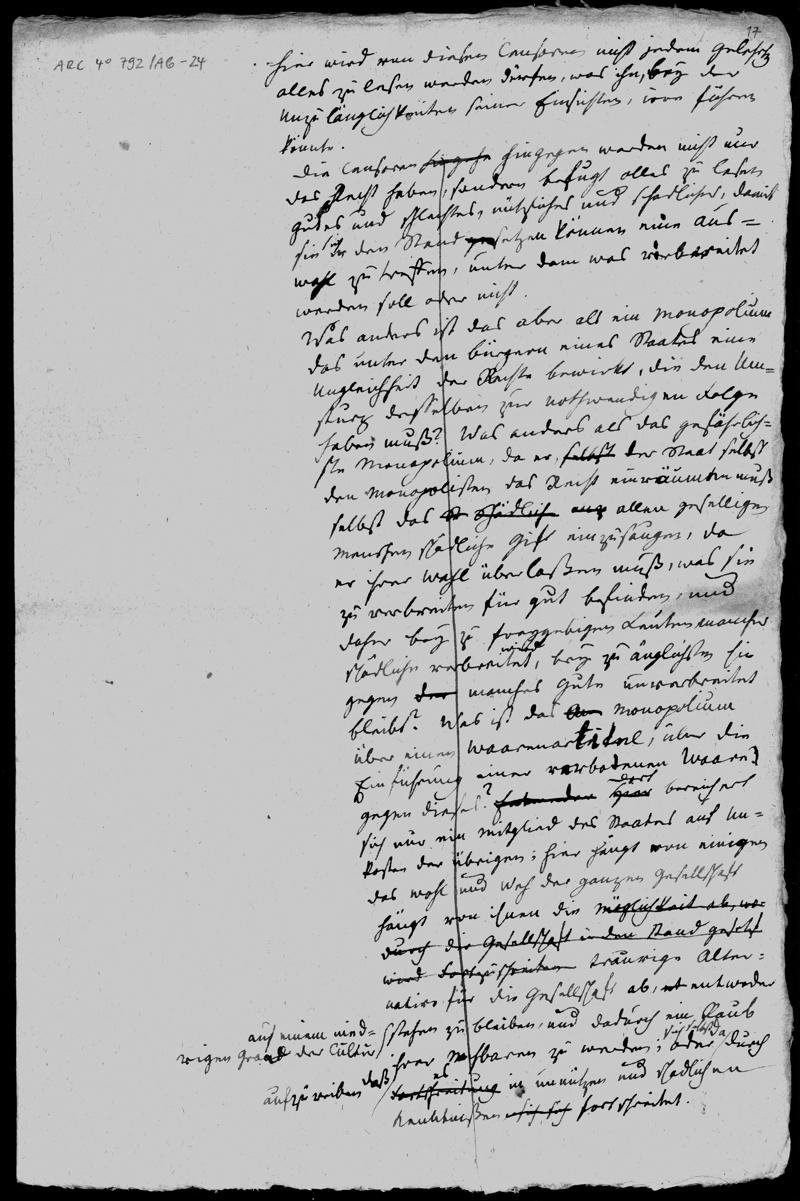 17
ARC 4° 792/A6-24
hier wird von diesen Censoren nicht jedem gelehrten
alles zu lesen werden dürfen, was ihn, bey der
Unzulänglichkeiten seiner Einsichten, irre führen
könnte.
Die Censoren hingegen werden nicht nur
das Recht haben, sondern befugt alles zu lesen
gutes und schlechtes, nützliches und schädliches, damit
sie in den Stand setzen können eine aus=
wahl zu treffen, unter dem was verbreitet
werden soll oder nicht.
Was anders ist das aber als ein Monopolium
das unter den bürgern eines Staates eine
Ungleichheit der Rechte bewirkt, die den Um=
sturz desselben zur nothwendigen Folge
haben muß? Was anders als das gefährlich=
ste Monopolium, da er selbst der Staat selbst
den Monopolisten das Recht einräumen muß
selbst das schädlich allen geselligen
Menschen schädliche Gift einzusaugen, da
er ihrer Wahl überlaßen muß, was sie
zu verbreiten für gut befinden, und
daher bey zu freygebigen Leuten manches
schädliche verbreitet wird, bey zu änglichsten hin
gegen der manches Gute unverbreitet
bleibt? Was ist das Monopolium
über einen Waarenartikel, über die
Einführung einer verbotenen Waare
gegen dieses? dort bereichert
sich nur ein Mitglied des Staates auf Un=
kosten der übrigen; hier hängt von einigen
das wohl und Weh der ganzen Gesellschaft
hängt von ihnen die Möglichkeit ab, wo
durch die Gesellschaft in den Stand gesetzt
wird fortzuschreiten traurige Alter=
native für die Gesellschaft ab, entweder
auf einem nied=
rigen Grad der Cultur
stehen zu bleiben, und dadurch ein Raub
ihrer Nachbaren zu werden; oder sich selbst da durch
aufzureiben daß es
Fortschreitung in unnützen und schädlichen
Kenntnißen fortschreitet.